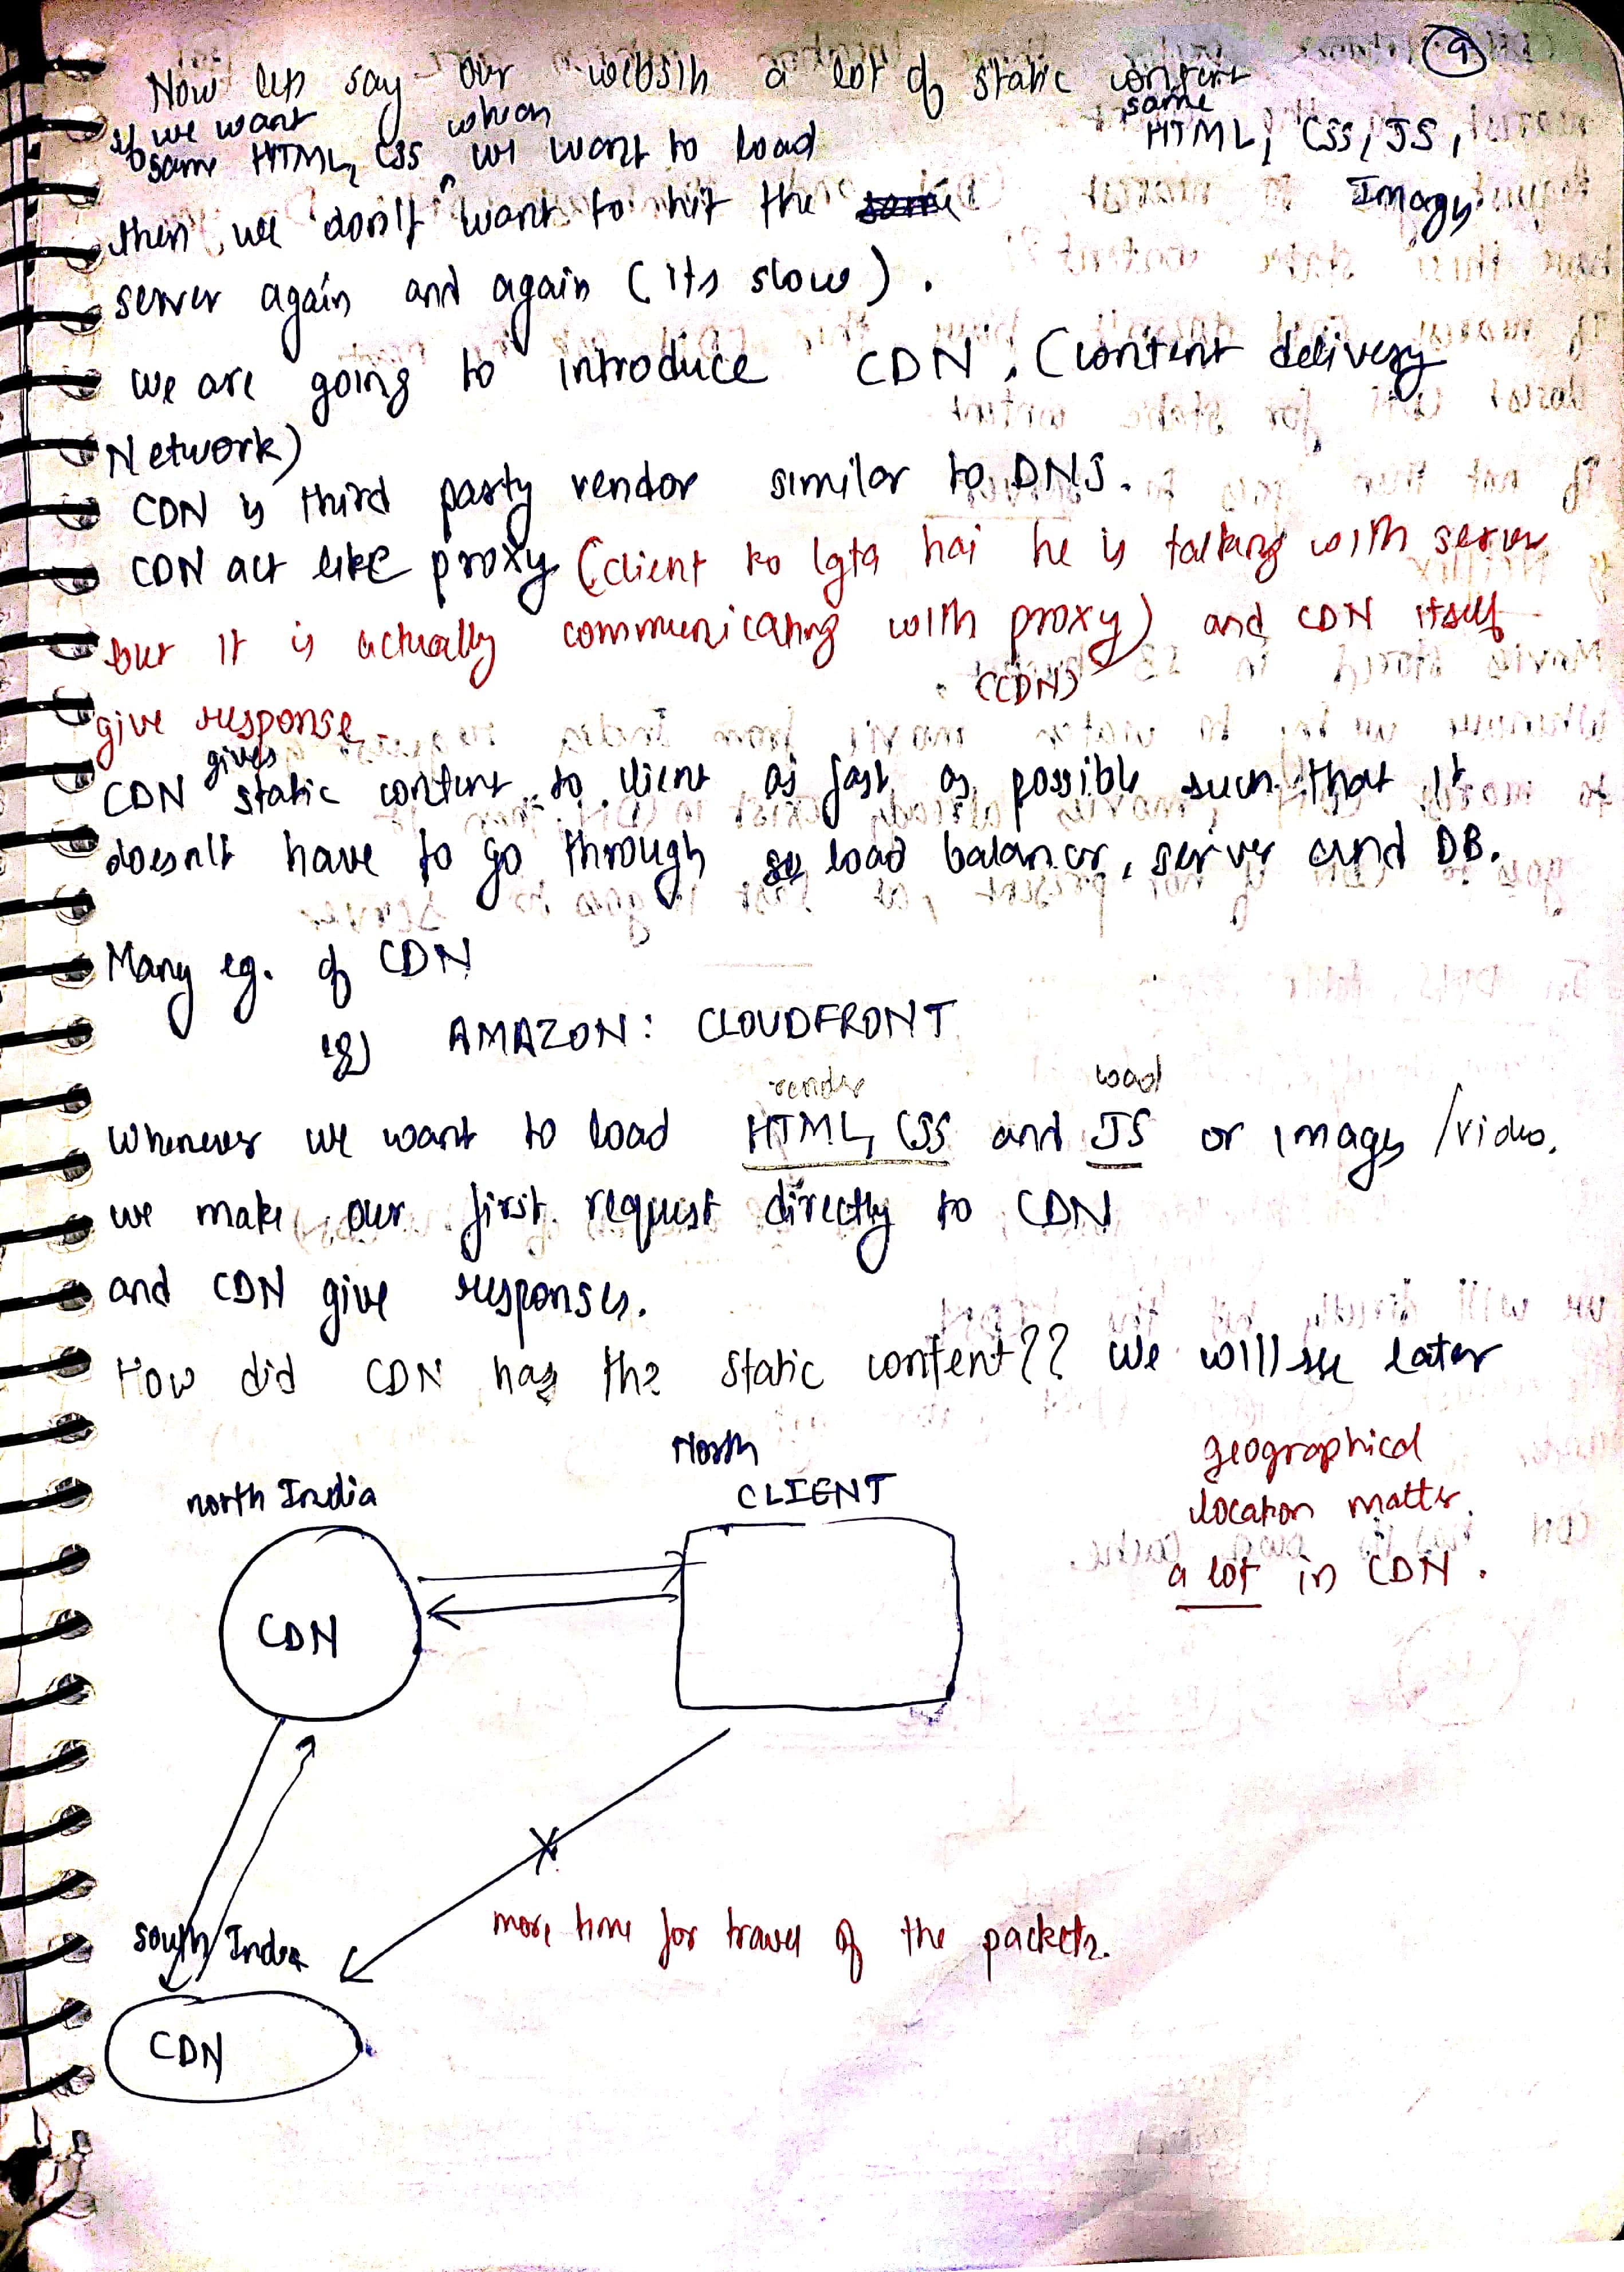 9
Now lets say our website a lot of static content
if we want when same
same HTML, CSS we want to load HTML, CSS, JS,
then we don't want to hit the same Images
server again and again (its slow).
we are going to introduce CDN. (content delivery
Network)
CDN is third party vendor similar to DNS.
CDN act like proxy (client ko lgta hai he is talking with server
but it is actually communicating with proxy) and CDN itself
(CDN)
give response.
gives
CDN static content to client as fast as possible such that it
doesn't have to go through load balancer, server and DB.
Many eg. of CDN
eg) AMAZON: CLOUDFRONT
render load
Whenever we want to load HTML, CSS and JS or images /video.
we make our first request directly to CDN
and CDN give responses.
How did CDN has the static content?? We will see later
north India
North
CLIENT
geographical
location matter
a lot in CDN.
CDN
south India
more time for travel of the packets.
CDN